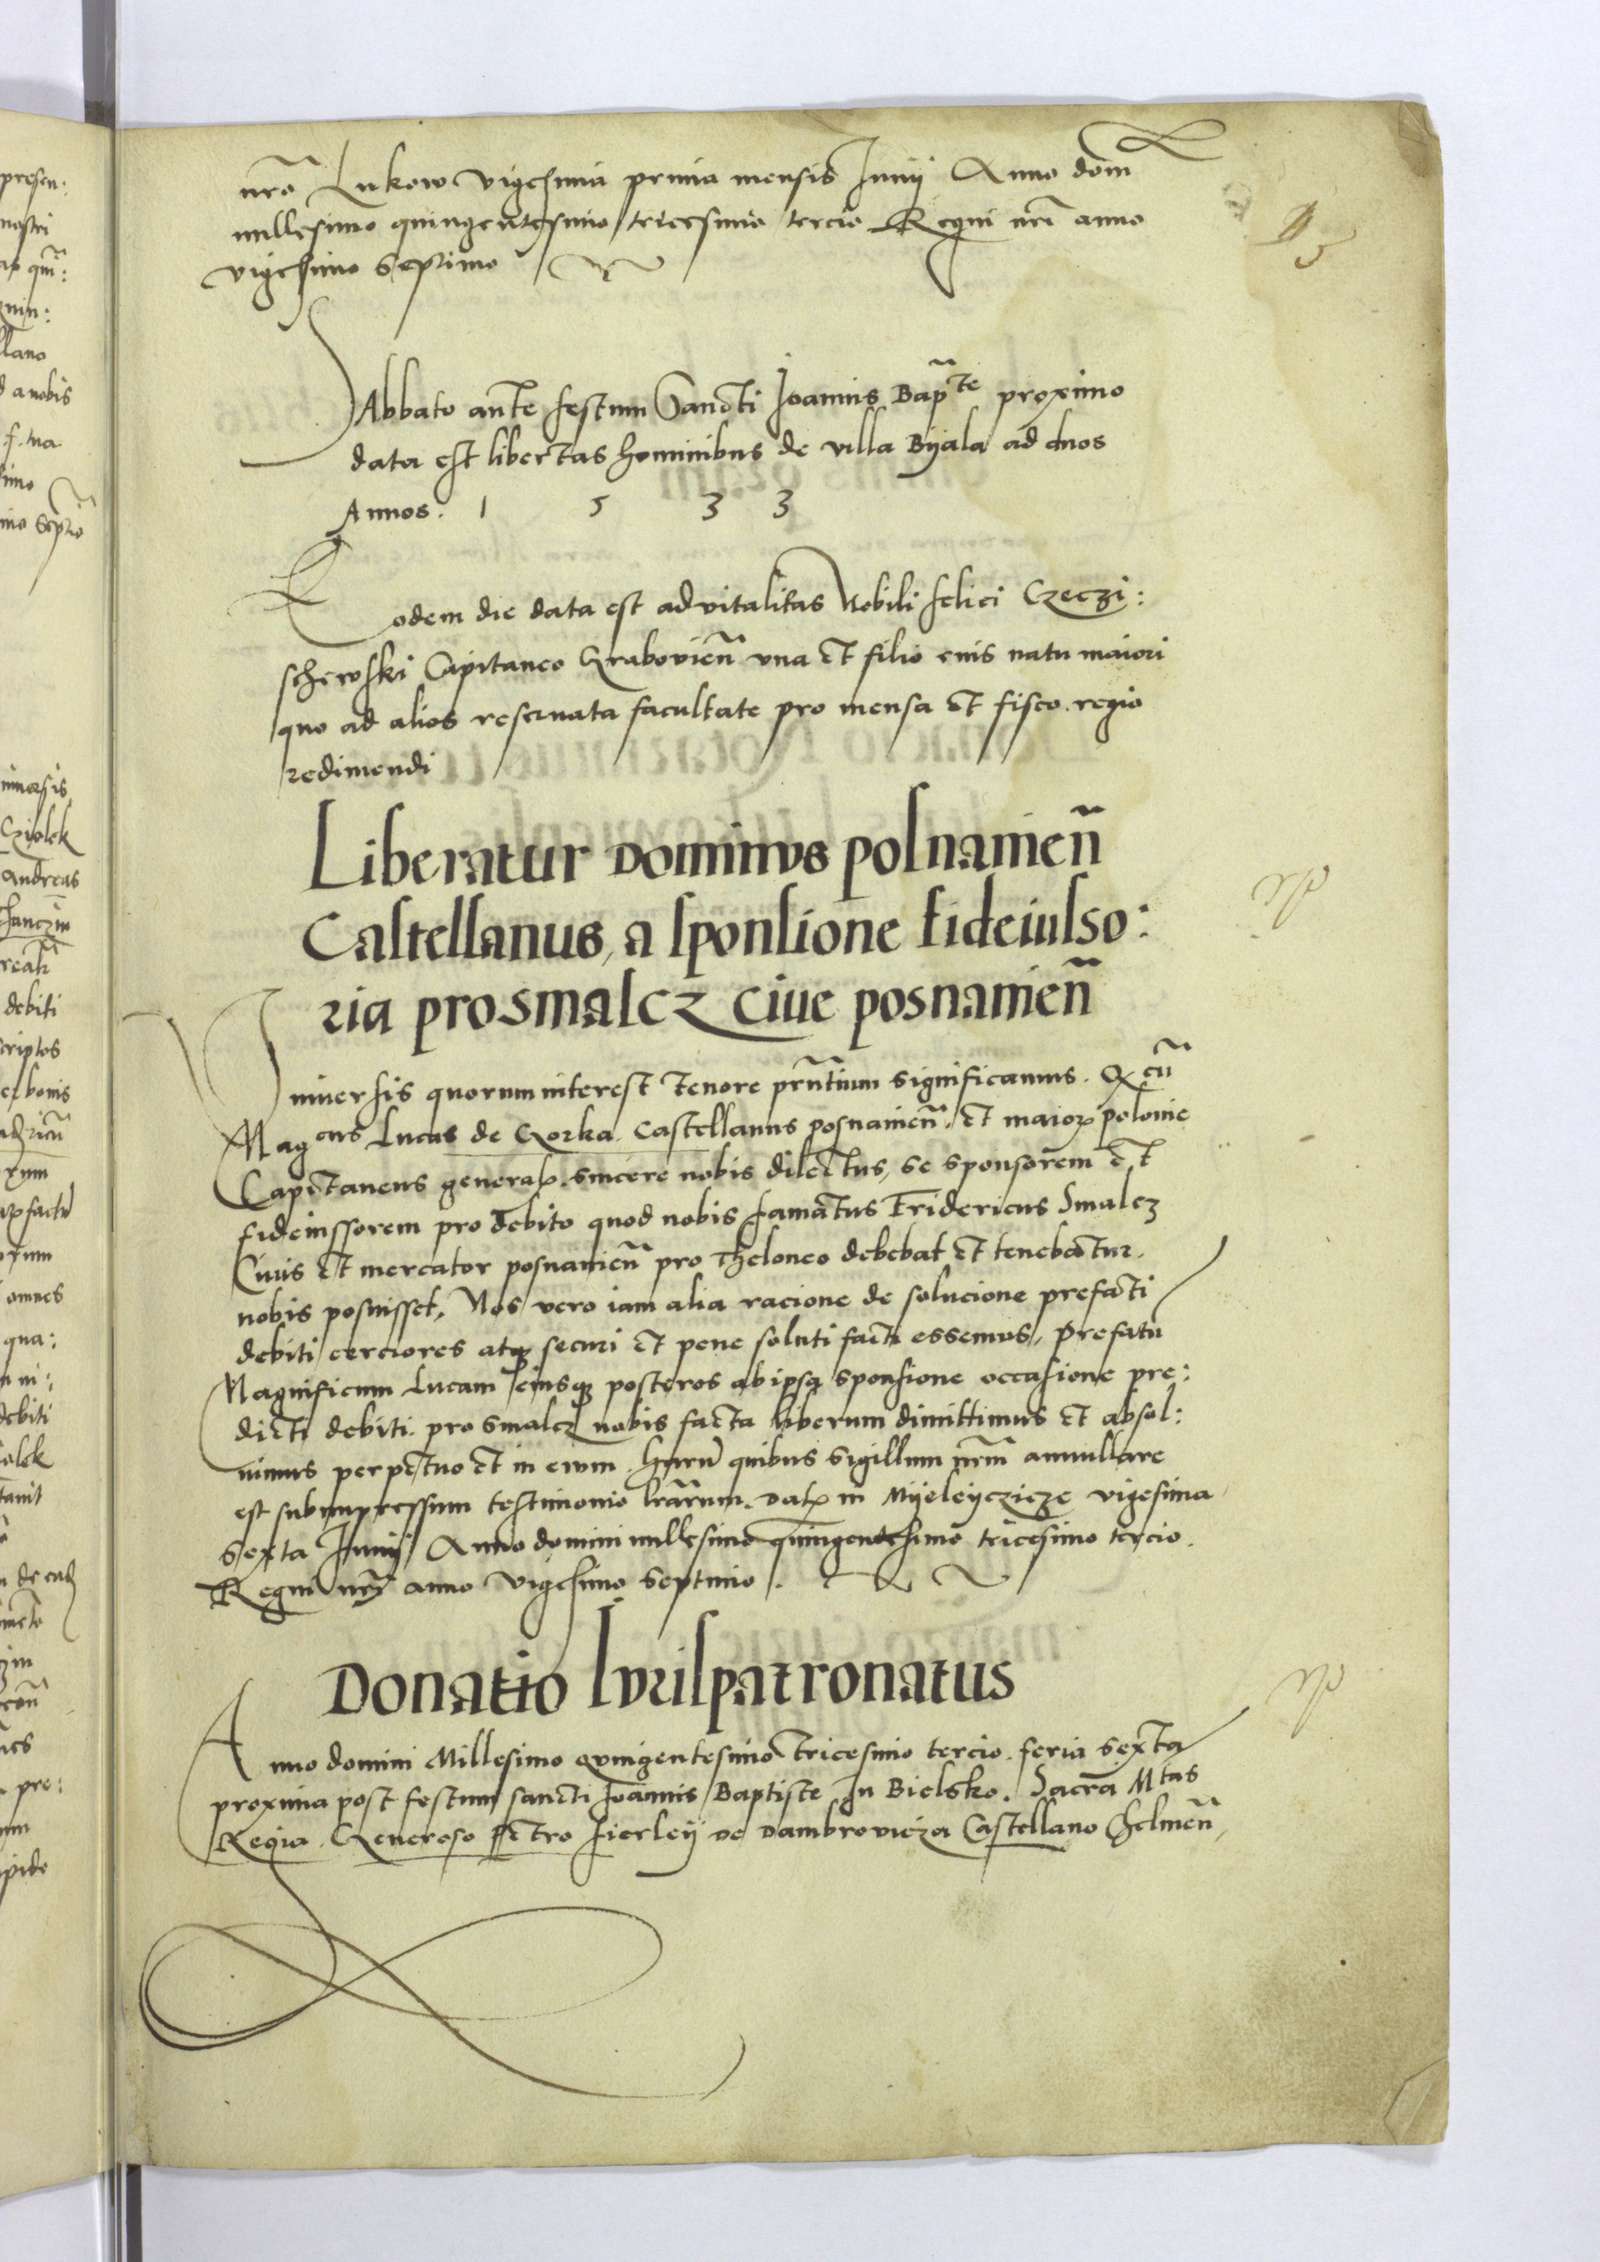 nr̃o Lukow vigesima prima mensis Junij Anno dom̃
millesimo quingentesimo tricesimo tercio Regni nr̃i anno
vigesimo septimo
Sabbato ante festum Sancti Joannis Bap̃te proximo
data est libertas hominibus de villa Byala ad duos
Annos. 1 5 3 3
Eodem die data est advitalitas Nobili felici Czeczi:
schewski Capitaneo Grabovien̄ vna et filio eius natu maiori
quo ad alios reservata facultate pro mensa et fisco regio
redimendi
Liberatur Dominus posnamen̄
Castellanus, a sponsione fideiusso:
ria pro smalcz ciue posnamen̄
Vniversis quorum interest tenore pr̃ntium significamus. Q cũ
Mag cus Lucas de Gorka Castellanus posnanien̄. et maioꝝ polonie
Capitaneus generaꝉ. sincere nobis dilectus, se sponsorem et
fideiussorem pro debito quod nobis famatus Fridericus Smalcz
Ciuis et mercator posnanien̄ pro Theloneo debebat et tenebatur.
nobis posuisset, Nos vero iam alia racione de solucione prefati
debiti cerciores atq securi et pene soluti facti essemus, Prefatũ
Magnificum Lucam eiusq posteros ab ipsa sponsione occasione pre:
dicti debiti pro smalcz nobis facta liberum dimittimus et absol:
uimus perpetuo et in ewm. harũ quibus sigillum nr̃m annullare
est subimpressum testimonio lr̃arum. Datꝭ in Myeleyczicze vigesima
sexta Junij Anno domini millesimo quingentesimo tricesimo tercio.
Regni nr̃j anno vigesimo septimo.
Donatio Iurispatronatus
Anno domini Millesimo quingentesimo tricesimo tercio. feria sexta
proxima post festum sancti Joannis Baptiste In Bielsko. Sacra Mtas
Regia. Generoso Petro firley de Dambrovicza Castellano Chelmen̄,